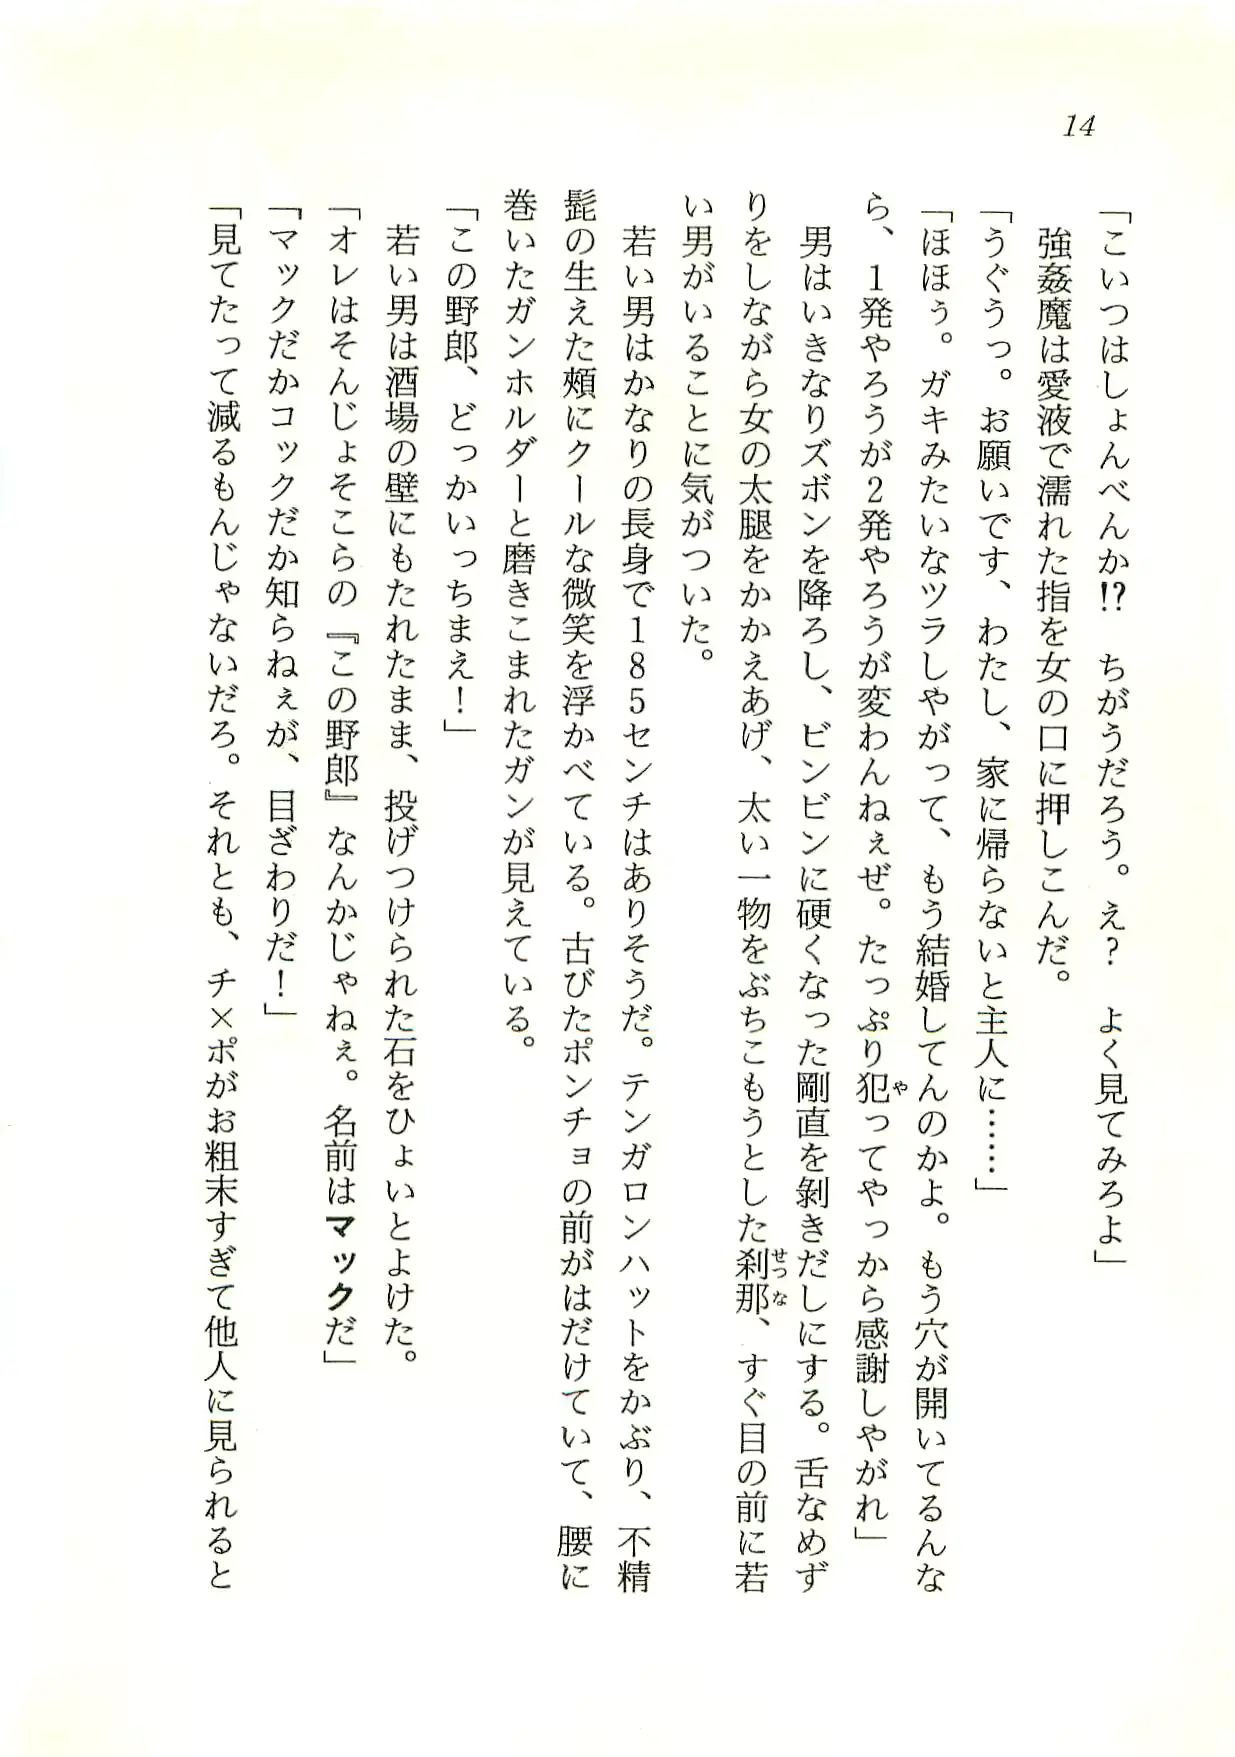 14
「こいつはしょんべんか!?　ちがうだろう。え？　よく見てみろよ」
強姦魔は愛液で濡れた指を女の口に押しこんだ。
「うぐうっ。お願いです、わたし、家に帰らないと主人に……」
「ほほぅ。ガキみたいなツラしやがって、もう結婚してんのかよ。もう穴が開いてるんな
ら、1発やろうが2発やろうが変わんねぇぜ。たっぷり犯ってやっから感謝しやがれ」
男はいきなりズボンを降ろし、ビンビンに硬くなった剛直を剝きだしにする。舌なめず
りをしながら女の太腿をかかえあげ、太い一物をぶちこもうとした刹那、すぐ目の前に若
い男がいることに気がついた。
若い男はかなりの長身で185センチはありそうだ。テンガロンハットをかぶり、不精
髭の生えた頰にクールな微笑を浮かべている。古びたポンチョの前がはだけていて、腰に
巻いたガンホルダーと磨きこまれたガンが見えている。
「この野郎、どっかいっちまえ！」
若い男は酒場の壁にもたれたまま、投げつけられた石をひょいとよけた。
「オレはそんじょそこらの『この野郎』なんかじゃねぇ。名前はマックだ」
「マックだかコックだか知らねぇが、目ざわりだ！」
「見てたって減るもんじゃないだろ。それとも、チ×ポがお粗末すぎて他人に見られると